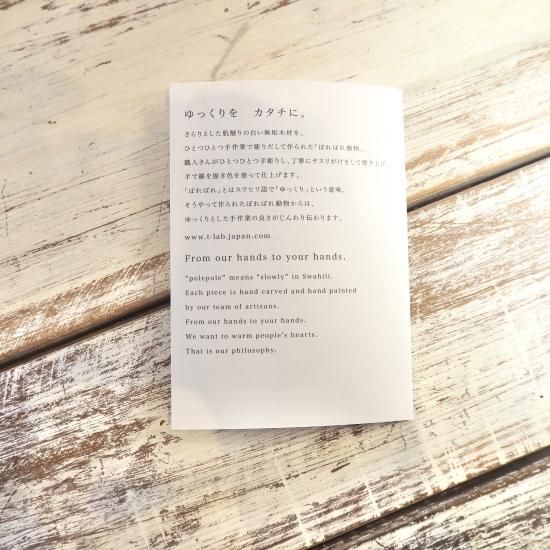 ゆっくりを　カタチに。
さらりとした肌触りの白い無垢木材を、
ひとつひとつ手作業で彫りだして作られた「ぽれぽれ動物」。
職人さんがひとつひとつ手彫りし、丁寧にヤスリがけをして磨き上げ、
手で線を描き色を塗って仕上げます。
「ぽれぽれ」とはスワヒリ語で「ゆっくり」という意味。
そうやって作られたぽれぽれ動物からは、
ゆっくりとした手作業の良さがじんわり伝わります。
www.t-lab.japan.com
From our hands to your hands.
“polepole” means “slowly” in Swahili.
Each piece is hand carved and hand painted
by our team of artisans.
From our hands to your hands.
We want to warm people’s hearts.
That is our philosophy.